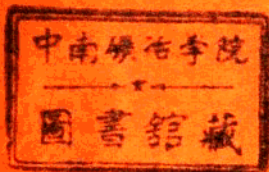 中南矿冶学院
圖書館藏